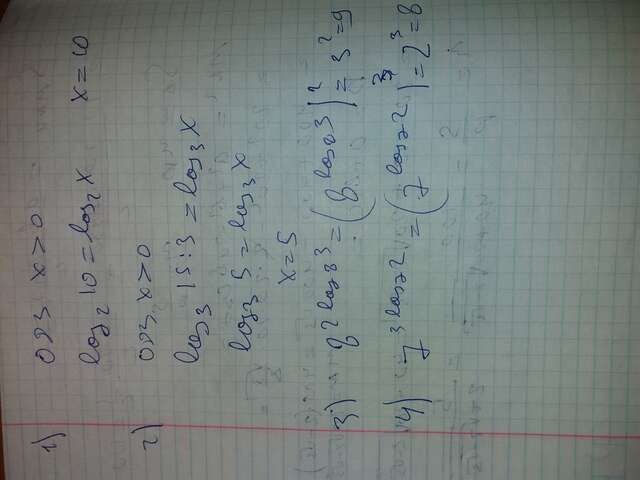 1) ОДЗ x > 0
log₂ 10 = log₂ x x = 10
2) ОДЗ x > 0
log₃ 15 : 3 = log₃ x
log₃ 5 = log₃ x
x = 5
3) 8^(2 log₈ 3) = (8^(log₈ 3))² = 3² = 9
4) 7^(3 log₇ 2) = (7^(log₇ 2))³ = 2³ = 8